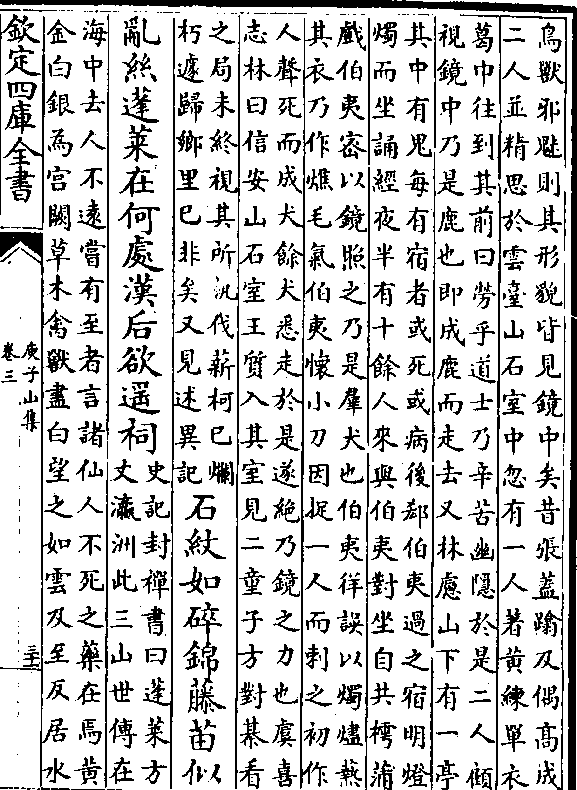 鳥獸邪魅則其形貌皆見鏡中矣昔張蓋蹹及偶髙成
二人並精思於雲臺山石室中忽有一人著黄練單衣
葛巾往到其前曰勞乎道士乃辛苦幽隠於是二人傾
視鏡中乃是鹿也即成鹿而走去又林慮山下有一亭
其中有鬼每有宿者或死或病後郄伯夷過之宿明燈
燭而坐誦經夜半有十餘人來與伯夷對坐自共樗蒲
戲伯夷密以鏡照之乃是羣犬也伯夷徉誤以燭燼爇
其衣乃作燋毛氣伯夷懷小刀因捉一人而刺之初作
人聲死而成犬餘犬悉走於是遂絶乃鏡之力也虞喜
志林曰信安山石室王質入其室見二童子方對棊看
之局未終視其所執伐薪柯已爛
朽遽歸鄉里已非矣又見述異記
石紋如碎錦藤苗似
亂絲蓬萊在何處漢后欲遥祠
史記封禪書曰蓬萊方
丈瀛洲此三山世傳在
海中去人不逺嘗有至者言諸仙人不死之藥在焉黄
金白銀為宫闕草木禽獸盡白望之如雲及至反居水
欽定四庫全書
庾子山集
卷三